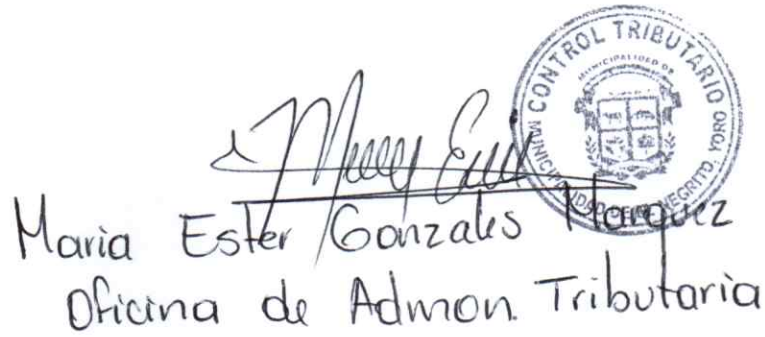 CONTROL TRIBUTARIO
MUNICIPALIDAD DE
MUNICIPALIDAD DE EL NEGRITO, YORO
Maria Ester Gonzales Marquez
Oficina de Admon. Tributaria